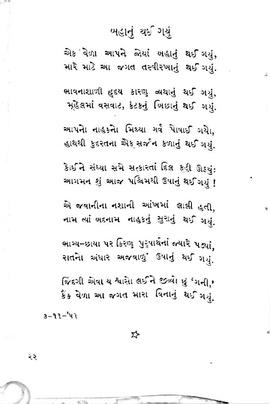 બહાનું થઈ ગયું
એક વેળા આપને એવાં બહાનું થઈ ગયું,
મારે માટે આ જગત તસ્વીરખાનું થઈ ગયું.
ભાવનાશાળી હૃદય કારણ વ્યથાનું થઈ ગયું,
મહેલમાં વસવાટ, કંટકનું બિછાનું થઈ ગયું.
આપનો નાહકનો મિથ્યા ગર્વ પોષાઈ ગયો,
હાથથી કુદરતના એક સર્જન કળાનું થઈ ગયું.
કોઈને સંધ્યા સમે સત્કારતાં દિલ કહી ઊઠયું:
આગમન શું આજ પશ્ચિમથી ઉષાનું થઈ ગયું!
એ જવાનીના નશાની આંખમાં લાલી હતી,
નામ ત્યાં બદનામ નાહકનું સુરાનું થઈ ગયું.
ભાગ્ય-છાયા પર કિરણ પુરુષાર્થનાં જ્યારે પડ્યાં,
રાતનો અંધાર અજવાળું ઉષાનું થઈ ગયું.
જિંદગી એવા ય શ્વાસો લઈને જીવ્યો છું 'ગની,'
કૈંક વેળા આ જગત મારા વિનાનું થઈ ગયું.
૩-૧૧-'૫૧
૨૨